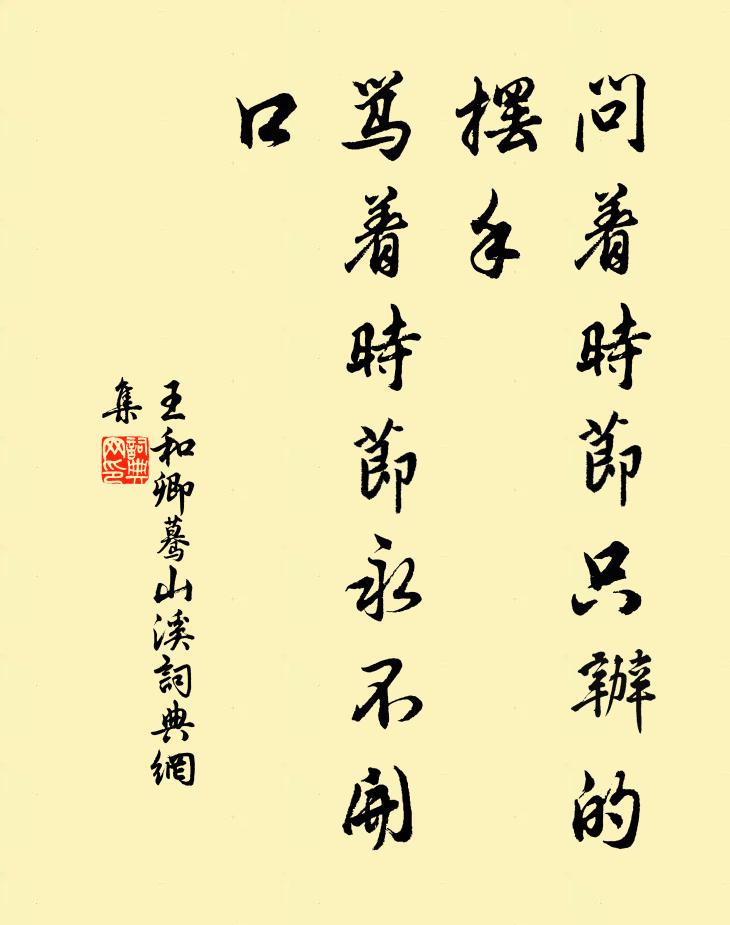 問着時節只辦的
擺手
罵着時節永不開
口
王和卿蓦山溪詞典網
集
詞典網印